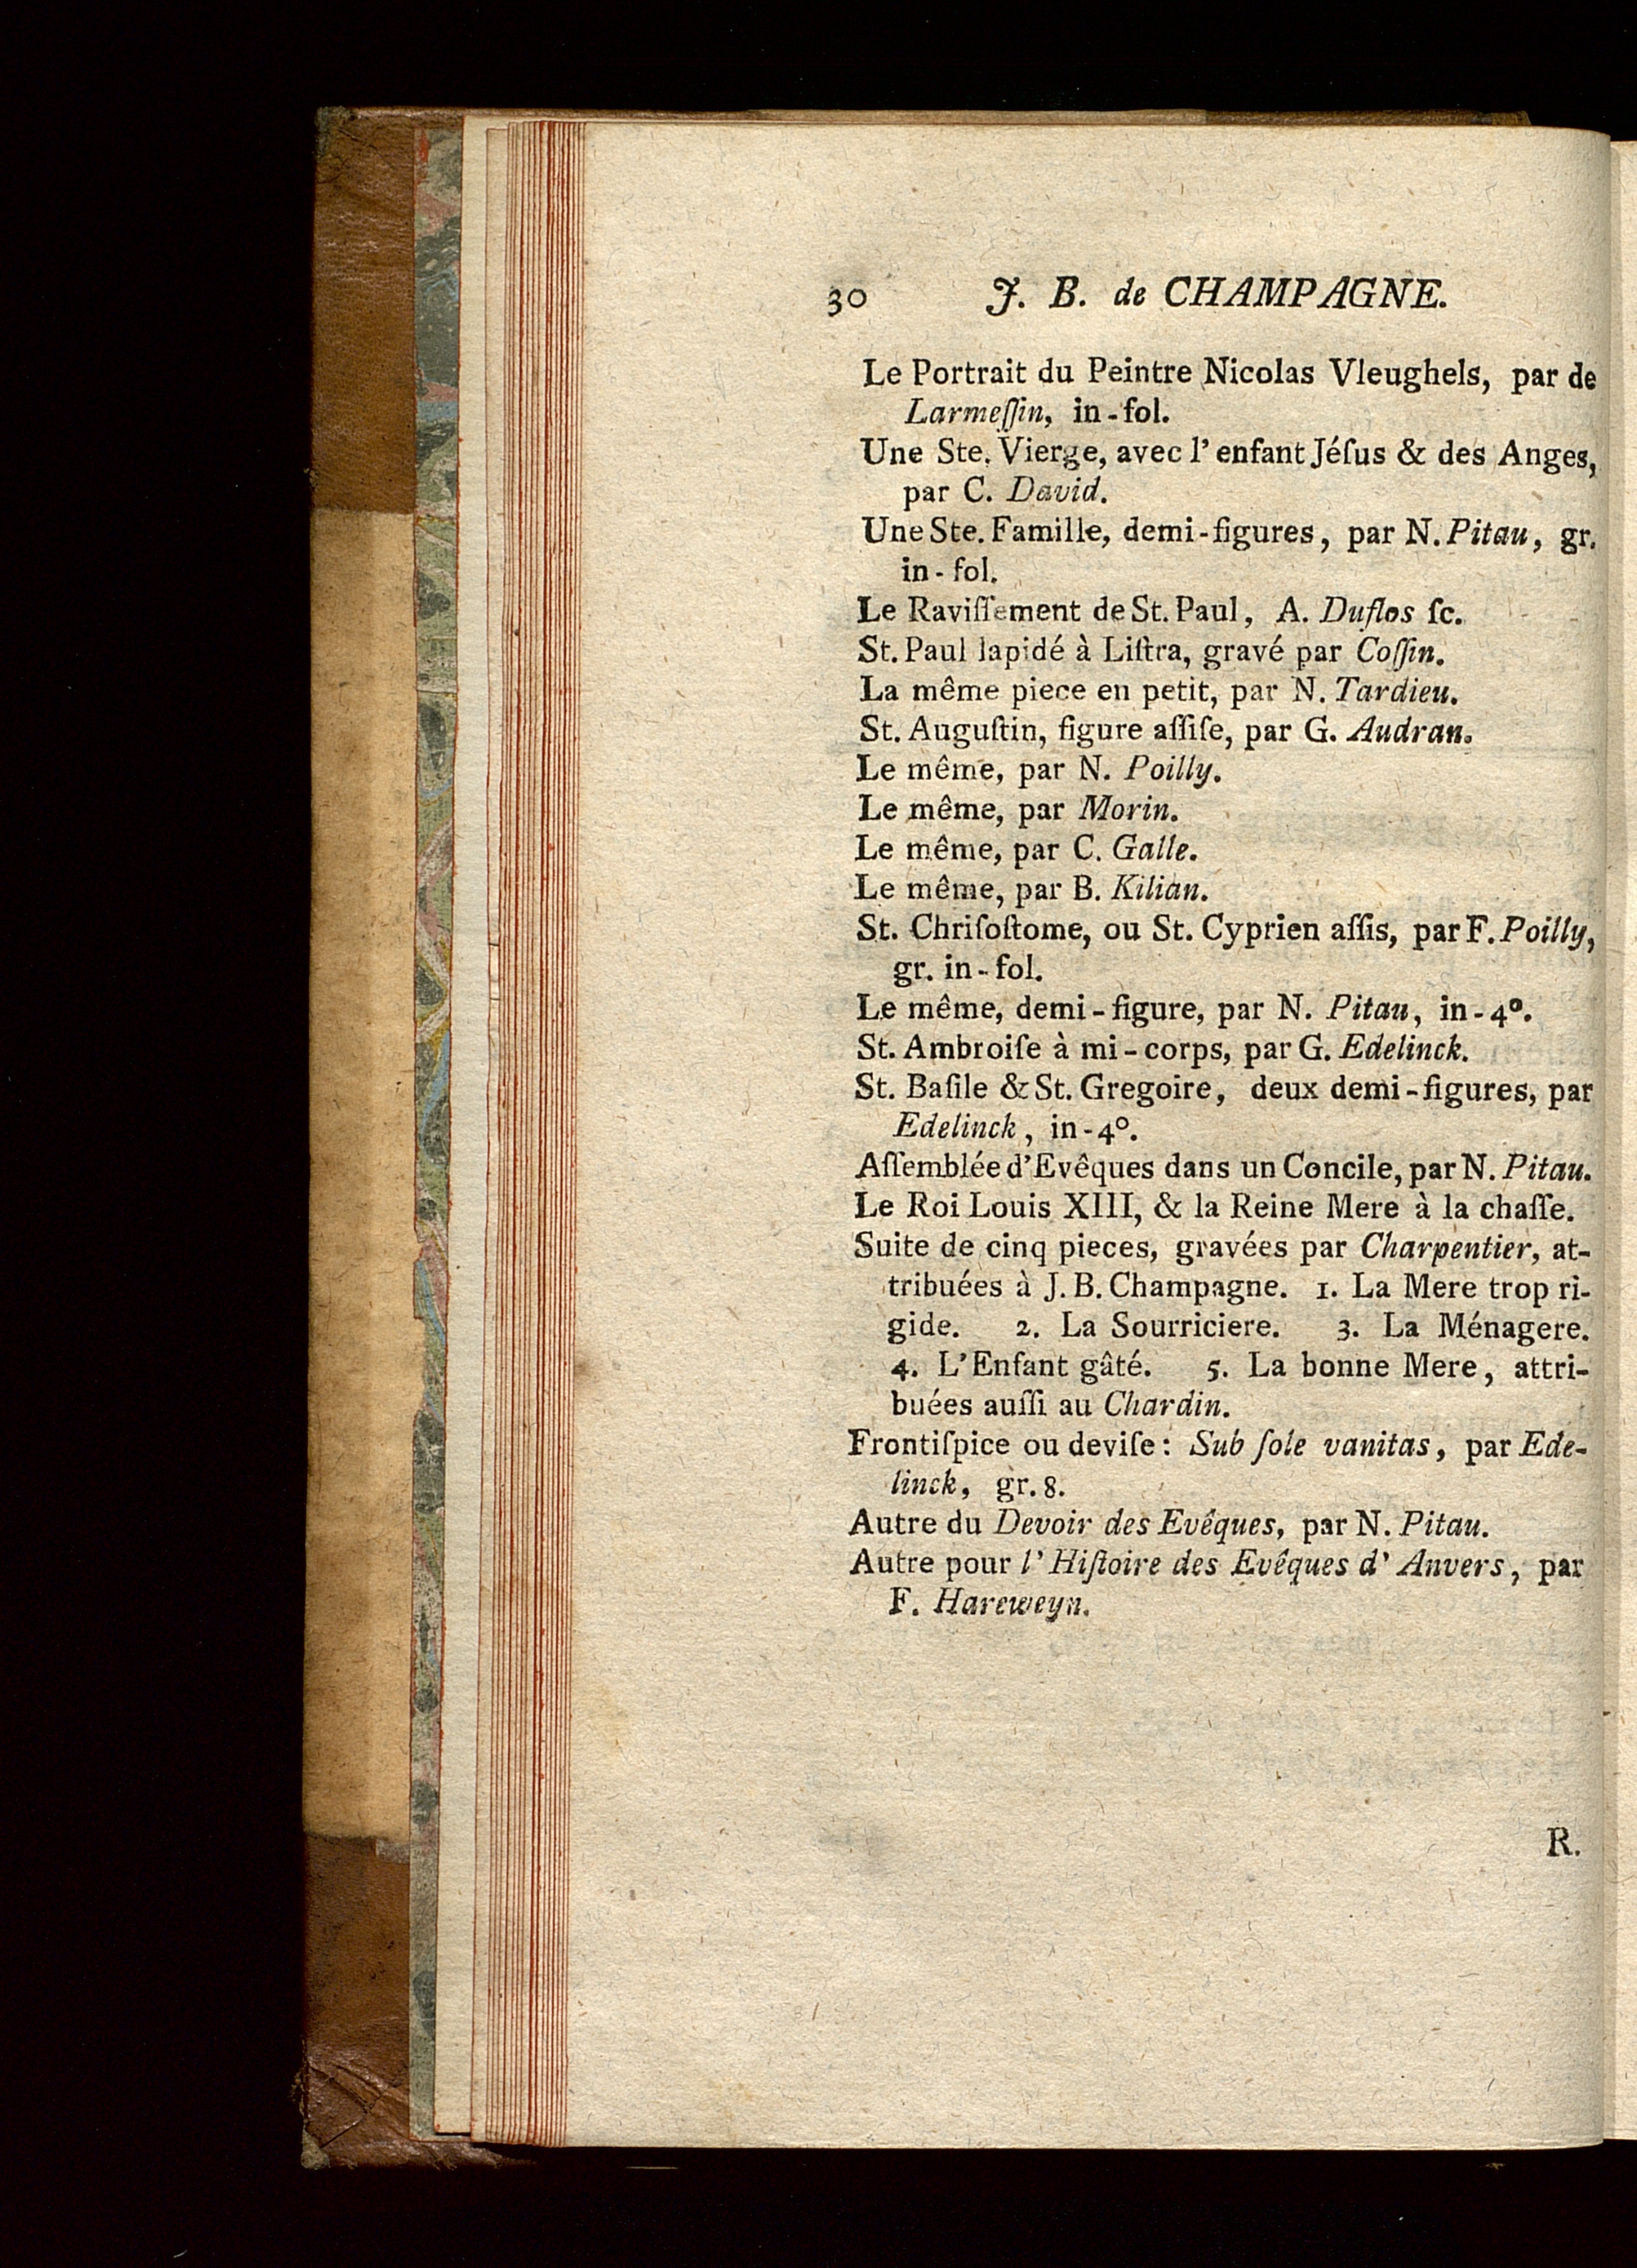 30 J. B. de CHAMPAGNE.
Le Portrait du Peintre Nicolas Vleughels, par de
Larmeſſin, in-fol.
Une Ste. Vierge, avec l' enfant Jéſus & des Anges,
par C. David.
Une Ste. Famille, demi-figures, par N. Pitau, gr.
in-fol.
Le Raviſſement de St. Paul, A. Duflos ſc.
St. Paul lapidé à Liſtra, gravé par Coſſin.
La même piece en petit, par N. Tardieu.
St. Auguſtin, figure aſſiſe, par G. Audran.
Le même, par N. Poilly.
Le même, par Morin.
Le même, par C. Galle.
Le même, par B. Kilian.
St. Chriſoſtome, ou St. Cyprien aſſis, par F. Poilly,
gr. in-fol.
Le même, demi-figure, par N. Pitau, in-4°.
St. Ambroiſe à mi-corps, par G. Edelinck.
St. Baſile & St. Gregoire, deux demi-figures, par
Edelinck, in-4°.
Aſſemblée d'Evêques dans un Concile, par N. Pitau.
Le Roi Louis XIII, & la Reine Mere à la chaſſe.
Suite de cinq pieces, gravées par Charpentier, at-
tribuées à J. B. Champagne. 1. La Mere trop ri-
gide. 2. La Sourriciere. 3. La Ménagere.
4. L'Enfant gâté. 5. La bonne Mere, attri-
buées auſſi au Chardin.
Frontiſpice ou deviſe: Sub ſole vanitas, par Ede-
linck, gr. 8.
Autre du Devoir des Evêques, par N. Pitau.
Autre pour l' Hiſtoire des Evêques d' Anvers, par
F. Hareweyn.
R.